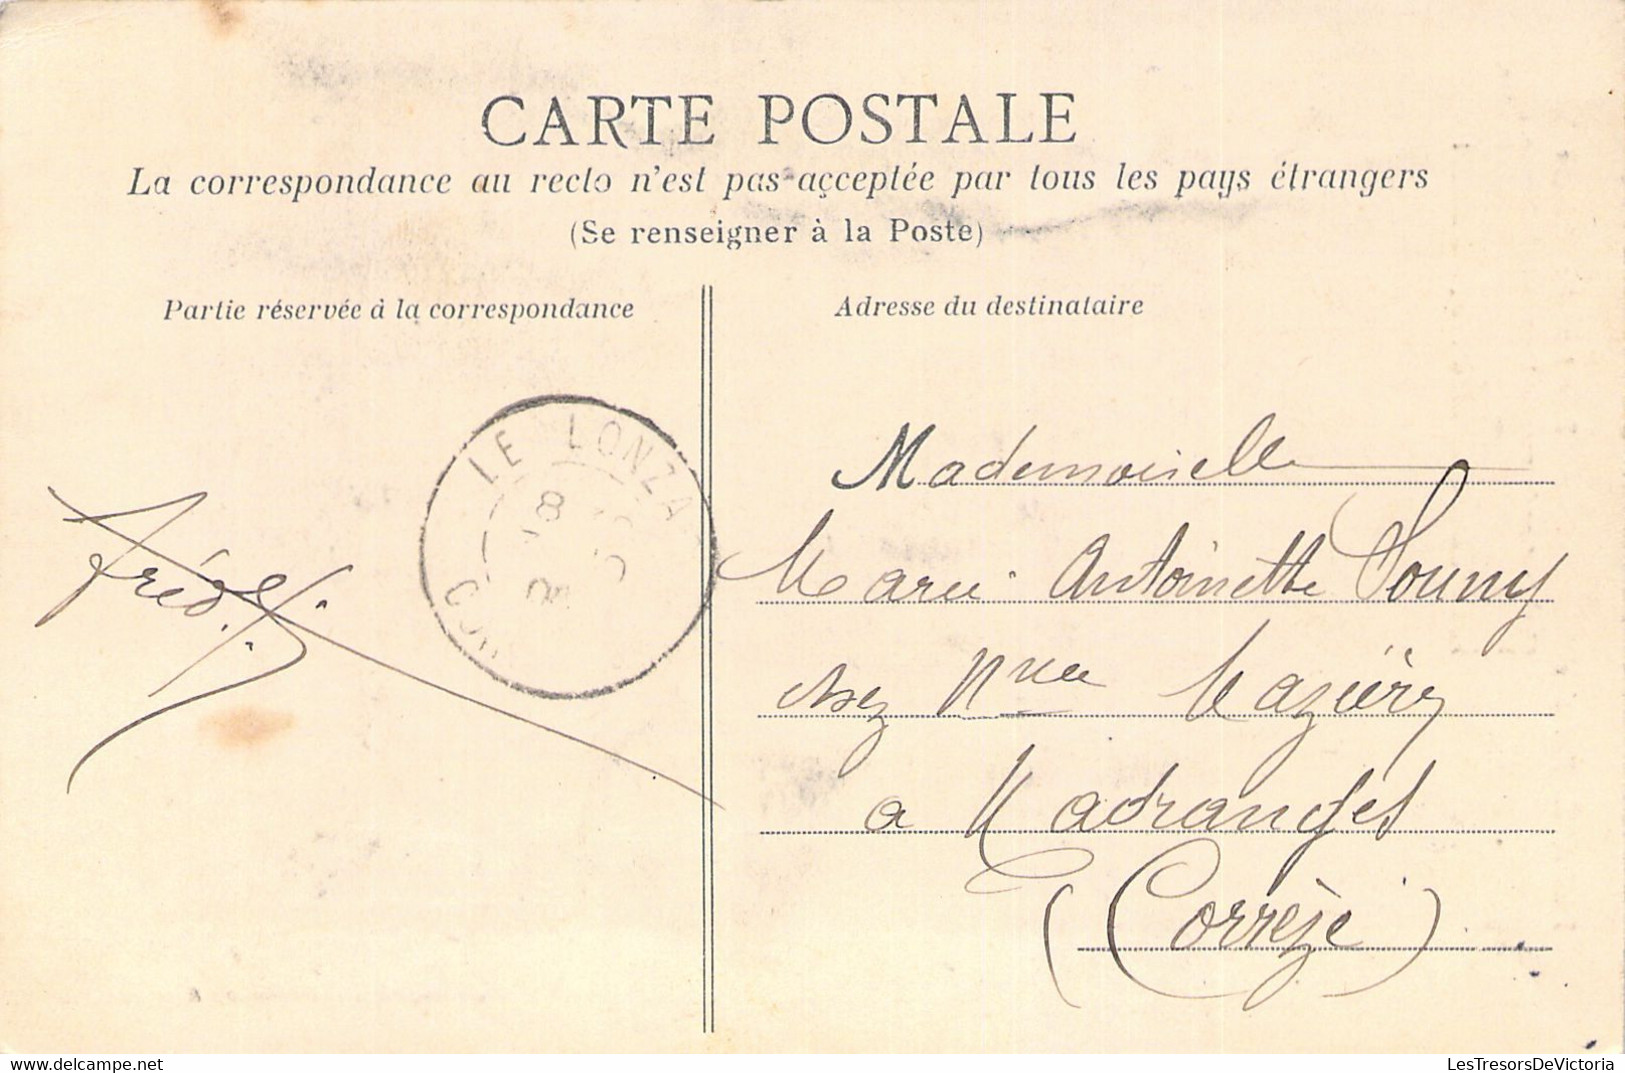 CARTE POSTALE
La correspondance au recto n'est pas acceptée par tous les pays étrangers
(Se renseigner à la Poste)
Partie réservée à la correspondance
Adresse du destinataire
LE LONZA
8
COR
Fréd.
Mademoiselle
Marie Antoinette Souny
chez Mme Mazière
a Madranges
(Corrèze)
LesTresorsDeVictoria